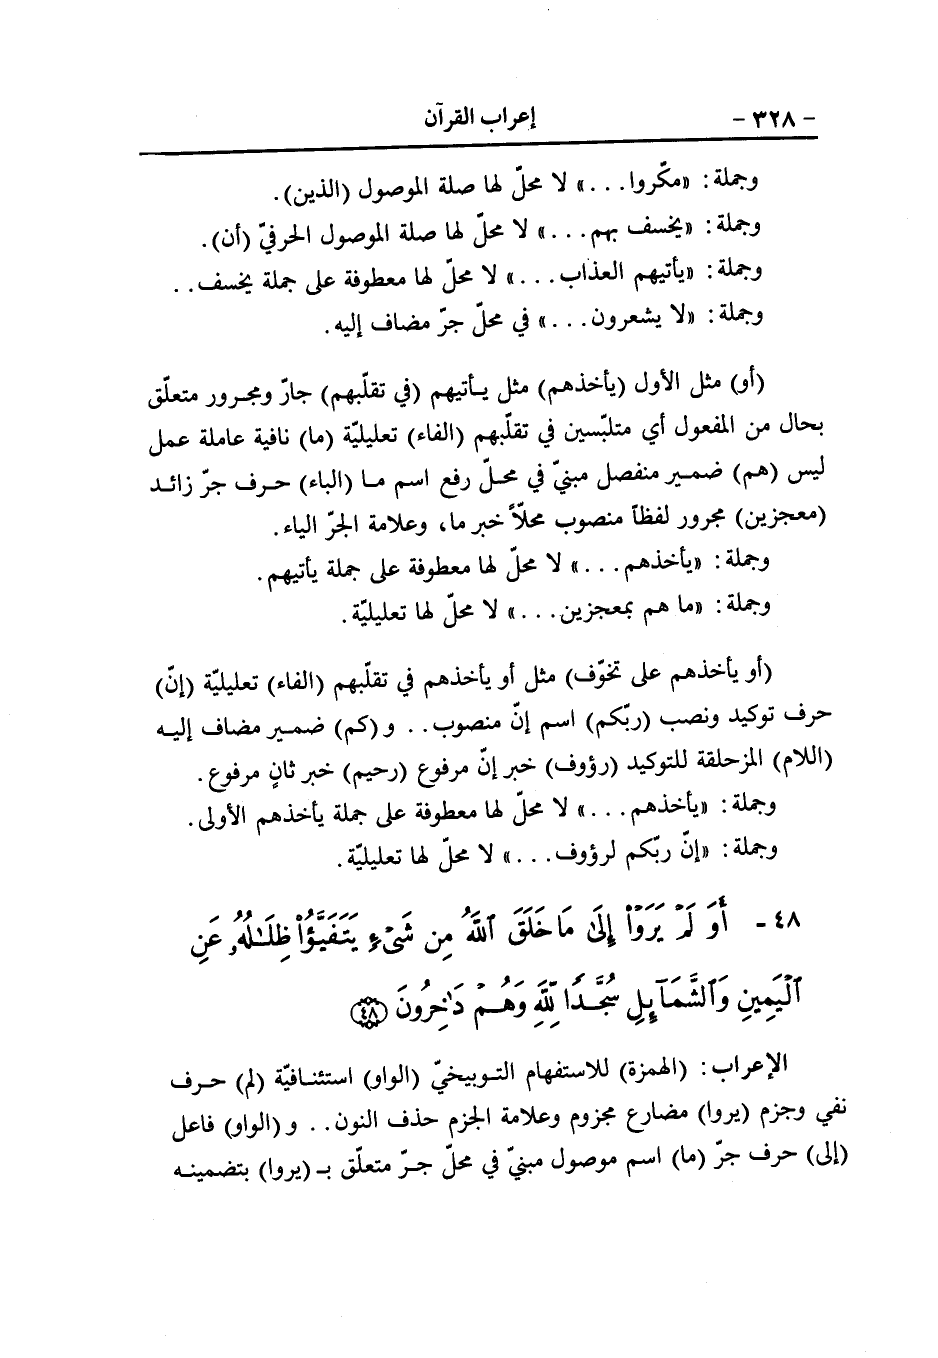 - ٣٢٨ - إعراب القرآن
وجملة: «مكّروا...» لا محلّ لها صلة الموصول (الذين).
وجملة: «يخسف بهم...» لا محلّ لها صلة الموصول الحرفيّ (أن).
وجملة: «يأتيهم العذاب...» لا محلّ لها معطوفة على جملة يخسف..
وجملة: «لا يشعرون...» في محلّ جرّ مضاف إليه.
(أو) مثل الأول (يأخذهم) مثل يأتيهم (في تقلّبهم) جارّ ومجرور متعلّق
بحال من المفعول أي متلبّسين في تقلّبهم (الفاء) تعليليّة (ما) نافية عاملة عمل
ليس (هم) ضمير منفصل مبنيّ في محلّ رفع اسم ما (الباء) حرف جرّ زائد
(معجزين) مجرور لفظاً منصوب محلّاً خبر ما، وعلامة الجرّ الياء.
وجملة: «يأخذهم...» لا محلّ لها معطوفة على جملة يأتيهم.
وجملة: «ما هم بمعجزين...» لا محلّ لها تعليليّة.
(أو يأخذهم على تخوّف) مثل أو يأخذهم في تقلّبهم (الفاء) تعليليّة (إنّ)
حرف توكيد ونصب (ربّكم) اسم إنّ منصوب.. و (كم) ضمير مضاف إليه
(اللام) المزحلقة للتوكيد (رؤوف) خبر إنّ مرفوع (رحيم) خبر ثانٍ مرفوع.
وجملة: «يأخذهم...» لا محلّ لها معطوفة على جملة يأخذهم الأولى.
وجملة: «إنّ ربّكم لرؤوف...» لا محلّ لها تعليليّة.
٤٨ - أَوَ لَمْ يَرَوْا۟ إِلَىٰ مَا خَلَقَ ٱللَّهُ مِن شَىْءٍ يَتَفَيَّؤُا۟ ظِلَـٰلُهُۥ عَنِ
ٱلْيَمِينِ وَٱلشَّمَآئِلِ سُجَّدًا لِّلَّهِ وَهُمْ دَٰخِرُونَ ﴿٤٨﴾
الإعراب: (الهمزة) للاستفهام التوبيخيّ (الواو) استئنافيّة (لم) حرف
نفي وجزم (يروا) مضارع مجزوم وعلامة الجزم حذف النون.. و (الواو) فاعل
(إلى) حرف جرّ (ما) اسم موصول مبنيّ في محلّ جرّ متعلّق بـ (يروا) بتضمينه